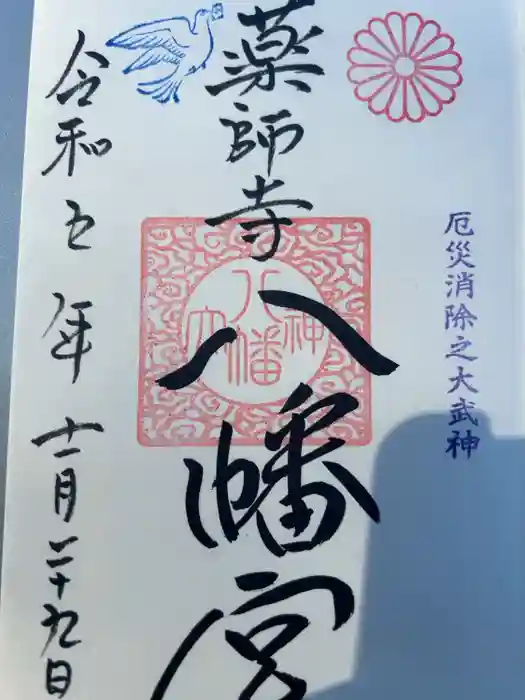 厄災消除之大武神
薬師寺
八幡宮
八幡大神
令和五年十一月二十九日